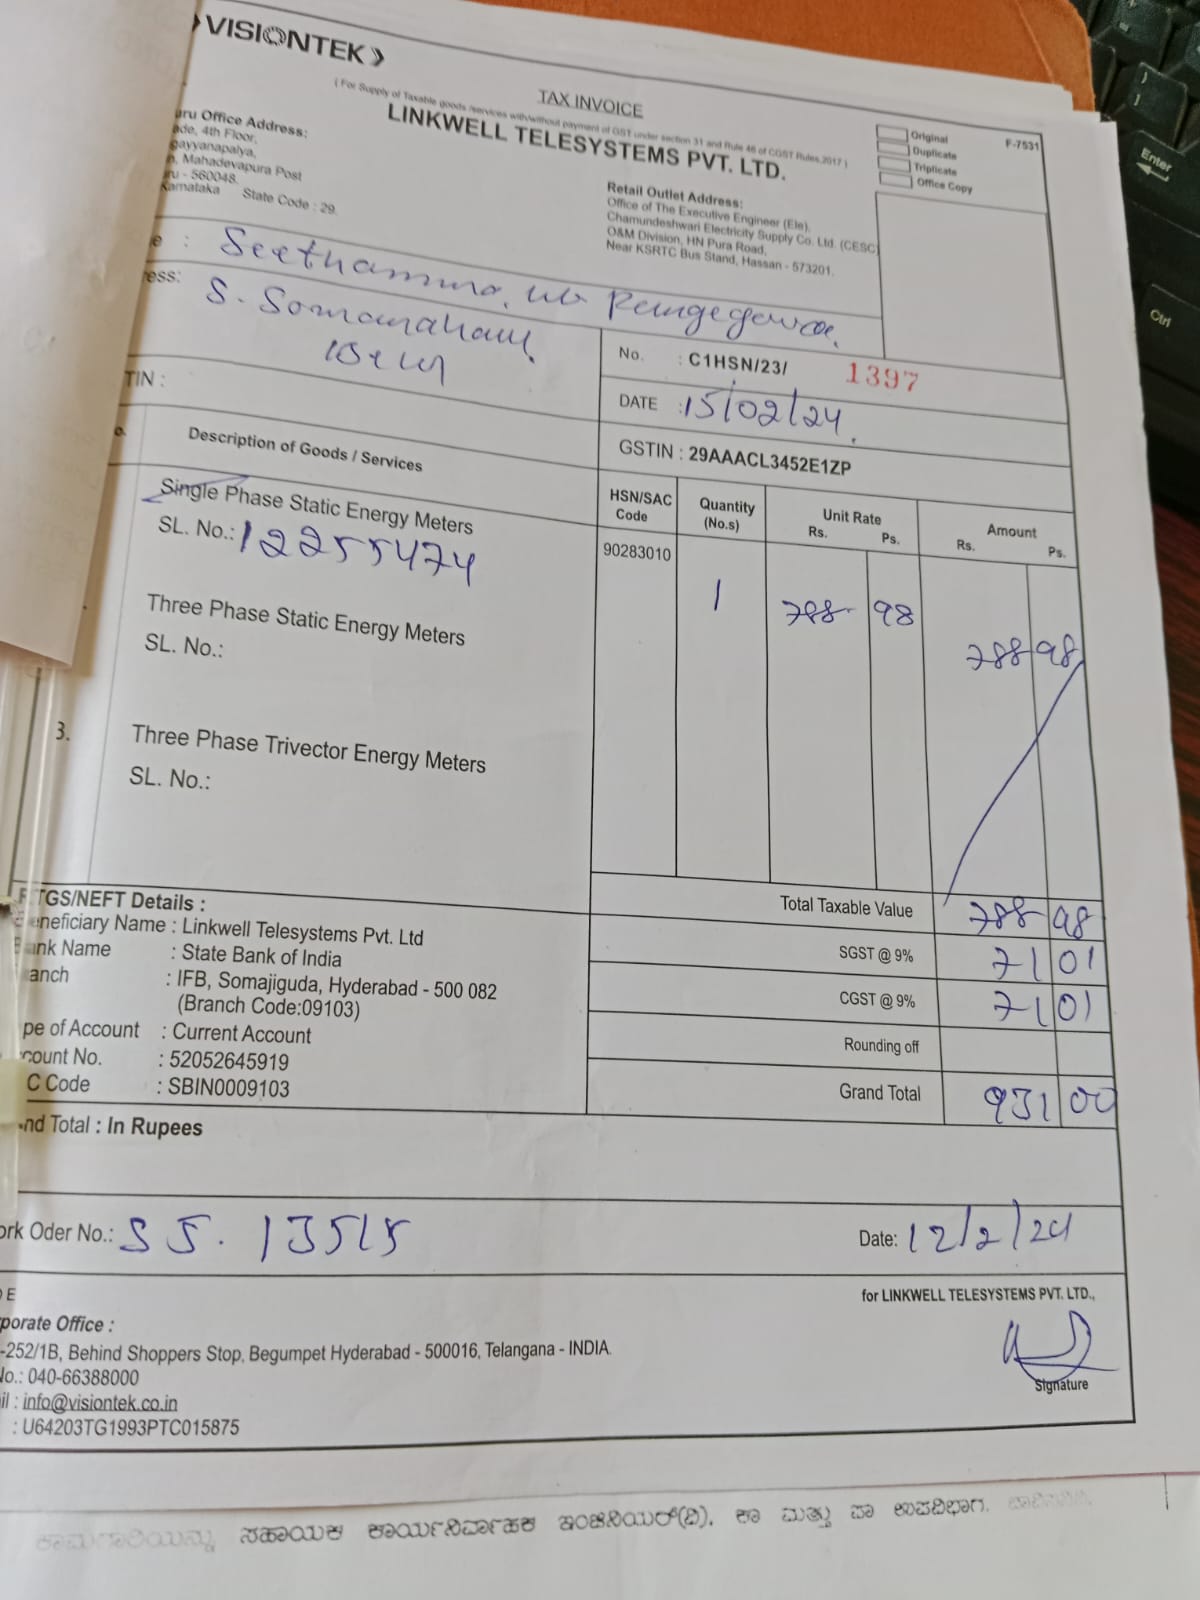 VISIONTEK
TAX INVOICE
( For Supply of Taxable goods /services with/without payment of GST under section 31 and Rule 46 of CGST Rules,2017 )
LINKWELL TELESYSTEMS PVT. LTD.
Original
Duplicate
Triplicate
Office Copy
F-7531
aru Office Address:
ade, 4th Floor,
gayyanapalya,
n, Mahadevapura Post
ru - 560048.
Karnataka State Code : 29.
Retail Outlet Address:
Office of The Executive Engineer (Ele).
Chamundeshwari Electricity Supply Co. Ltd. (CESC)
O&M Division, HN Pura Road,
Near KSRTC Bus Stand, Hassan - 573201.
e : Seethamma,
ess: S.
TIN :
No. : C1HSN/23/ 1397
DATE : 15/02/24.
GSTIN : 29AAACL3452E1ZP
Description of Goods / Services
HSN/SAC Code
Quantity (No.s)
Unit Rate Rs. Ps.
Amount Rs. Ps.
Single Phase Static Energy Meters
SL. No.: 12255474
90283010 1 788 98 788 98
Three Phase Static Energy Meters
SL. No.:
3. Three Phase Trivector Energy Meters
SL. No.:
RTGS/NEFT Details :
eneficiary Name : Linkwell Telesystems Pvt. Ltd
ank Name : State Bank of India
anch : IFB, Somajiguda, Hyderabad - 500 082
(Branch Code:09103)
pe of Account : Current Account
count No. : 52052645919
C Code : SBIN0009103
Total Taxable Value 788 98
SGST @ 9% 71 01
CGST @ 9% 71 01
Rounding off
Grand Total 931 00
nd Total : In Rupees
ork Oder No.: SS. 13515
Date: 12/2/24
for LINKWELL TELESYSTEMS PVT. LTD.,
Signature
porate Office :
-252/1B, Behind Shoppers Stop, Begumpet Hyderabad - 500016, Telangana - INDIA.
No.: 040-66388000
il : info@visiontek.co.in
: U64203TG1993PTC015875
ಕಾಮಗಾರಿಯನ್ನು ಸಹಾಯಕ ಕಾರ್ಯನಿರ್ವಾಹಕ ಇಂಜಿನಿಯರ್(ವಿ), ಕಾ ಮತ್ತು ಪಾ ಉಪವಿಭಾಗ,
Enter
Ctrl